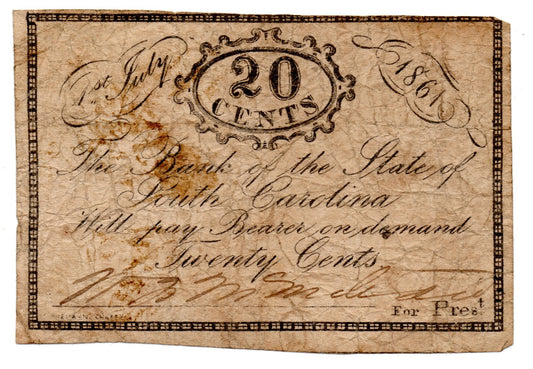 1st July
20
CENTS
1861
The Bank of the State of
South Carolina
Will pay Bearer on demand
Twenty Cents
For Prest